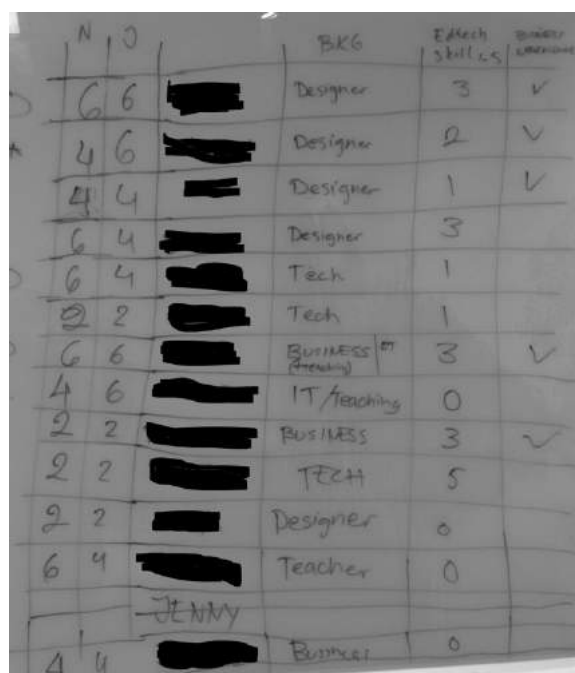 N J BKG Edtech skill
6 6 Designer 3 ✓
4 6 Designer 2 ✓
4 4 Designer 1 ✓
6 4 Designer 3
6 4 Tech 1
2 2 Tech 1
6 6 BUSINESS 3 ✓
(teaching)
4 6 IT/teaching 0
2 2 BUSINESS 3 ✓
2 2 TECH 5
2 2 Designer 0
6 4 Teacher 0
JENNY
4 4 Business 0